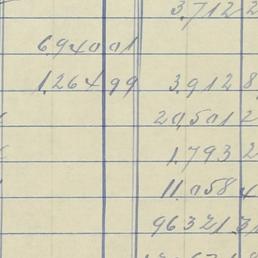 3,712 2
6,940 01
1,264 99 3,912 8
20,501 2
1,793 2
11,058 4
96 321 31